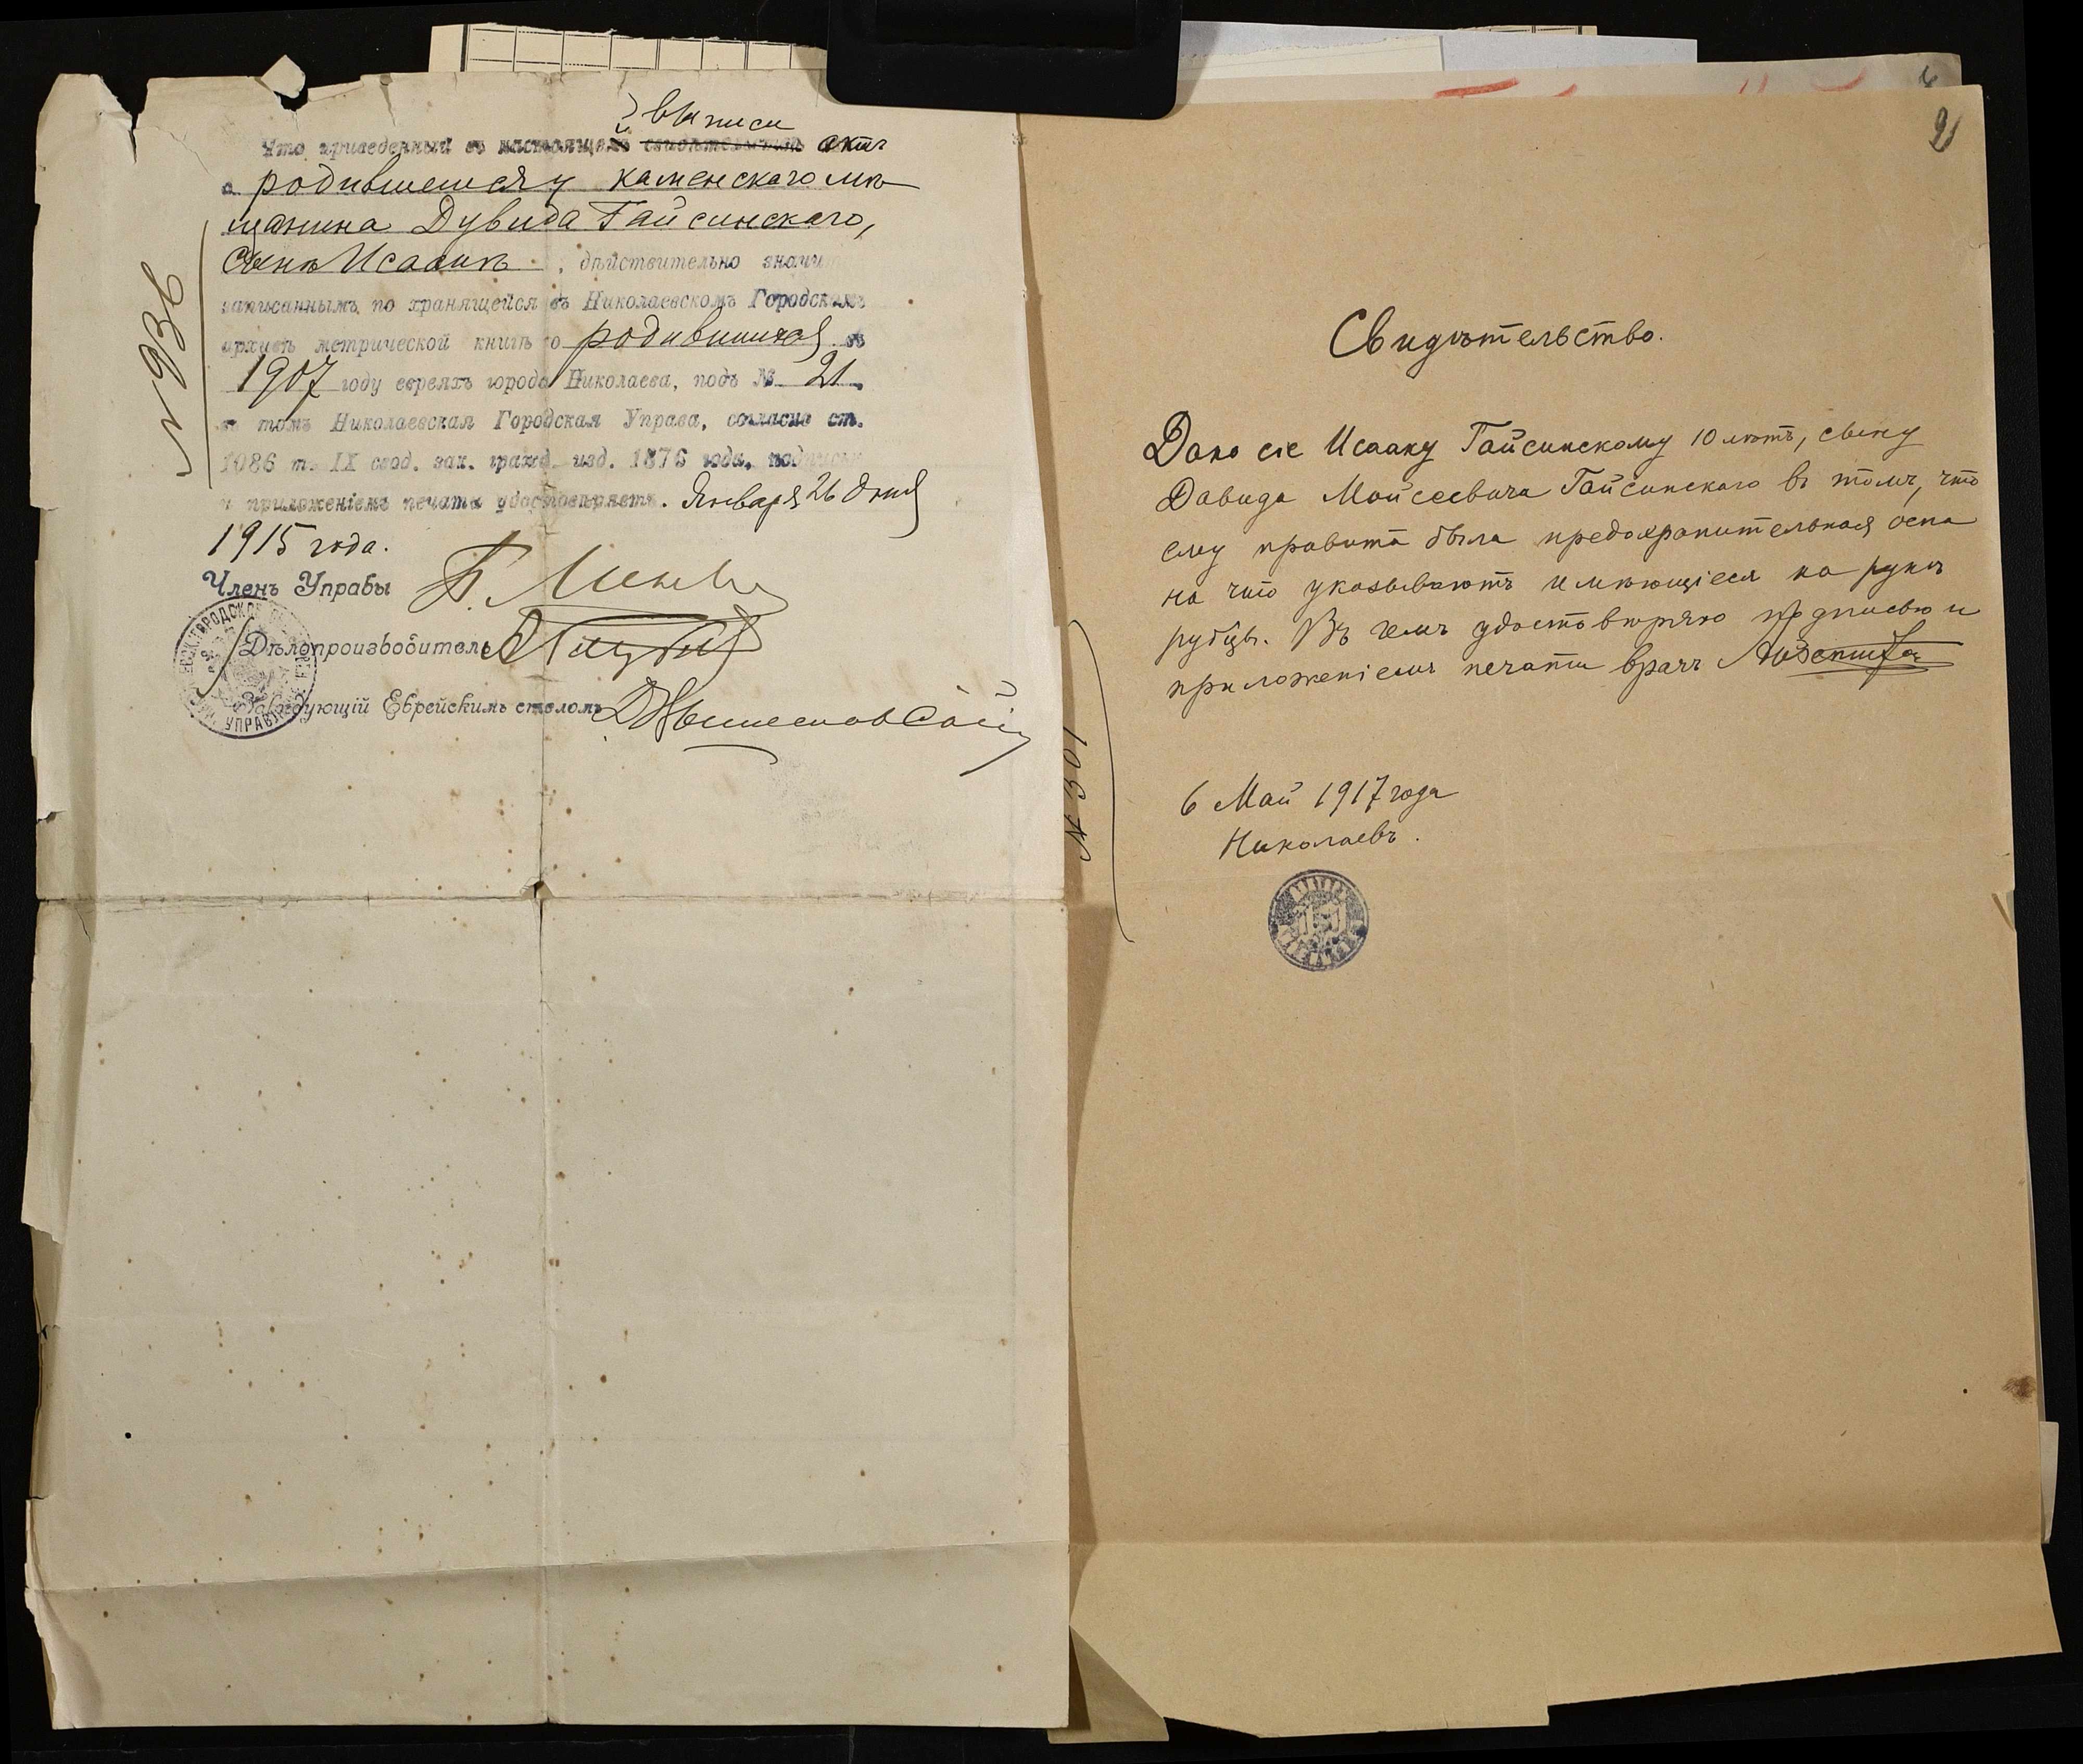 выписи
Что приведенный въ настоящей свидетельстве актъ
о родившемся у каменскаго мѣ
щанина Дувида Гайсинскаго,
сынѣ Исаакѣ, дѣйствительно значи
записаннымъ по хранящейся въ Николаевскомъ Городскомъ
архивѣ метрической книгѣ о родившихся въ
1907 году евреяхъ города Николаева, подъ № 21,
въ томъ Николаевская Городская Управа, согласно ст.
1086 т. IX свод. зак. гражд. изд. 1876 года, подписью
и приложеніемъ печати удостовѣряетъ. Января 26 дня
1915 года.
Членъ Управы
Дѣлопроизводитель
Завѣдующій Еврейскимъ столомъ
№ 936
УПРАВ
2
Свидѣтельство.
Дано сіе Исааку Гайсинскому 10 лѣтъ, сыну
Давида Мойсеевича Гайсинскаго въ томъ, что
ему правита была предохранительная оспа
на что указываютъ имѣющіеся на рукѣ
рубцы. Въ чемъ удостовѣряю подписью и
приложеніемъ печати врачъ
6 Май 1917 года
Николаевъ.
№ 301